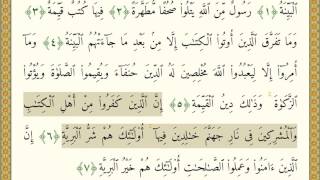 ٱلْبَيِّنَةُ ﴿١﴾ رَسُولٌ مِّنَ ٱللَّهِ يَتْلُوا۟ صُحُفًا مُّطَهَّرَةً ﴿٢﴾ فِيهَا كُتُبٌ قَيِّمَةٌ ﴿٣﴾
وَمَا تَفَرَّقَ ٱلَّذِينَ أُوتُوا۟ ٱلْكِتَـٰبَ إِلَّا مِنۢ بَعْدِ مَا جَآءَتْهُمُ ٱلْبَيِّنَةُ ﴿٤﴾ وَمَآ
أُمِرُوٓا۟ إِلَّا لِيَعْبُدُوا۟ ٱللَّهَ مُخْلِصِينَ لَهُ ٱلدِّينَ حُنَفَآءَ وَيُقِيمُوا۟ ٱلصَّلَوٰةَ وَيُؤْتُوا۟
ٱلزَّكَوٰةَ ۚ وَذَٰلِكَ دِينُ ٱلْقَيِّمَةِ ﴿٥﴾ إِنَّ ٱلَّذِينَ كَفَرُوا۟ مِنْ أَهْلِ ٱلْكِتَـٰبِ
وَٱلْمُشْرِكِينَ فِى نَارِ جَهَنَّمَ خَـٰلِدِينَ فِيهَآ ۚ أُو۟لَـٰٓئِكَ هُمْ شَرُّ ٱلْبَرِيَّةِ ﴿٦﴾ إِنَّ
ٱلَّذِينَ ءَامَنُوا۟ وَعَمِلُوا۟ ٱلصَّـٰلِحَـٰتِ أُو۟لَـٰٓئِكَ هُمْ خَيْرُ ٱلْبَرِيَّةِ ﴿٧﴾